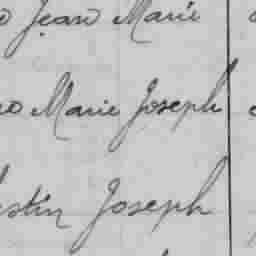 Jean Marie
Marie Joseph
Joseph